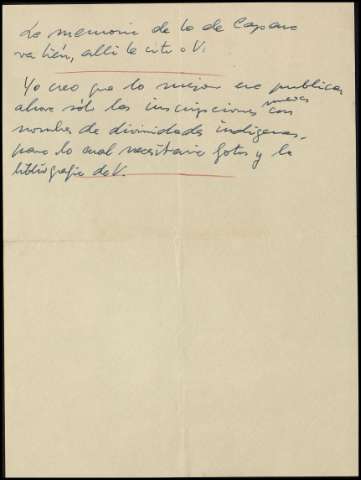 La memoria de lo de Capara
va bién, alli le cito a V.
Yo creo que lo mejor era publicar
ahora sólo las inscripciones nuevas con
nombres de divinidades indígenas,
para lo cual necesitaria fotos y la
bibliografia de V.